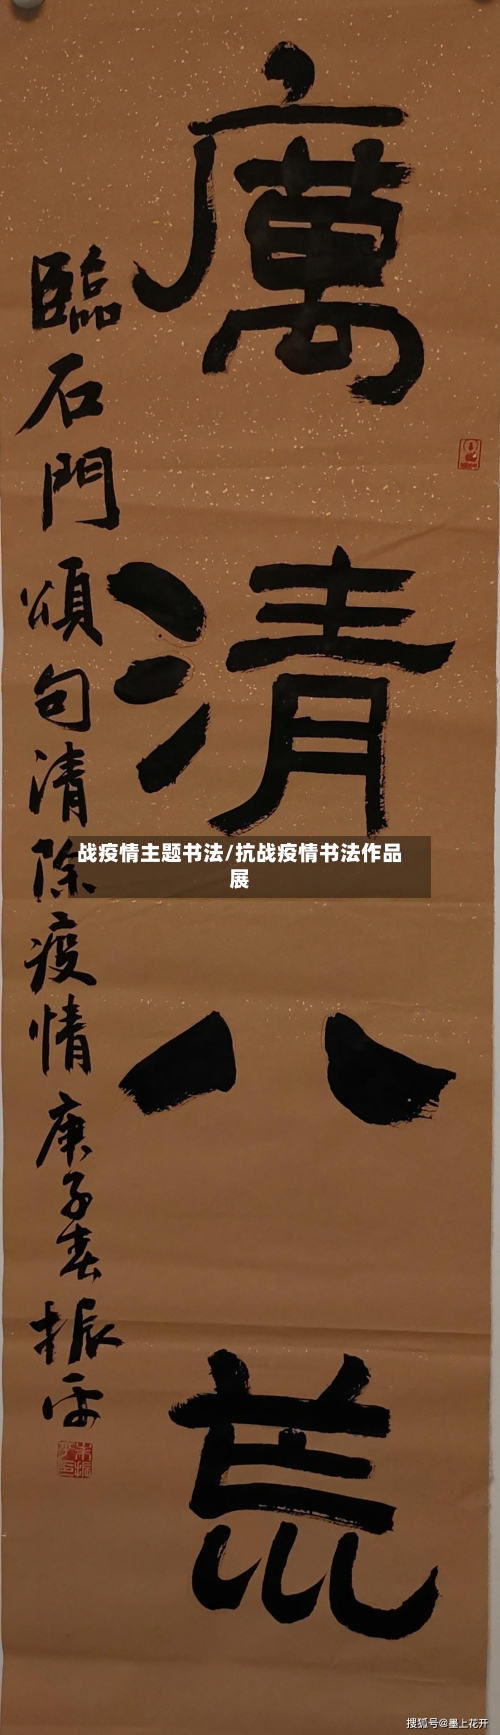 厲清八荒
臨石門頌句清除疫情庚子春振
战疫情主题书法/抗战疫情书法作品
展
搜狐号@墨上花开